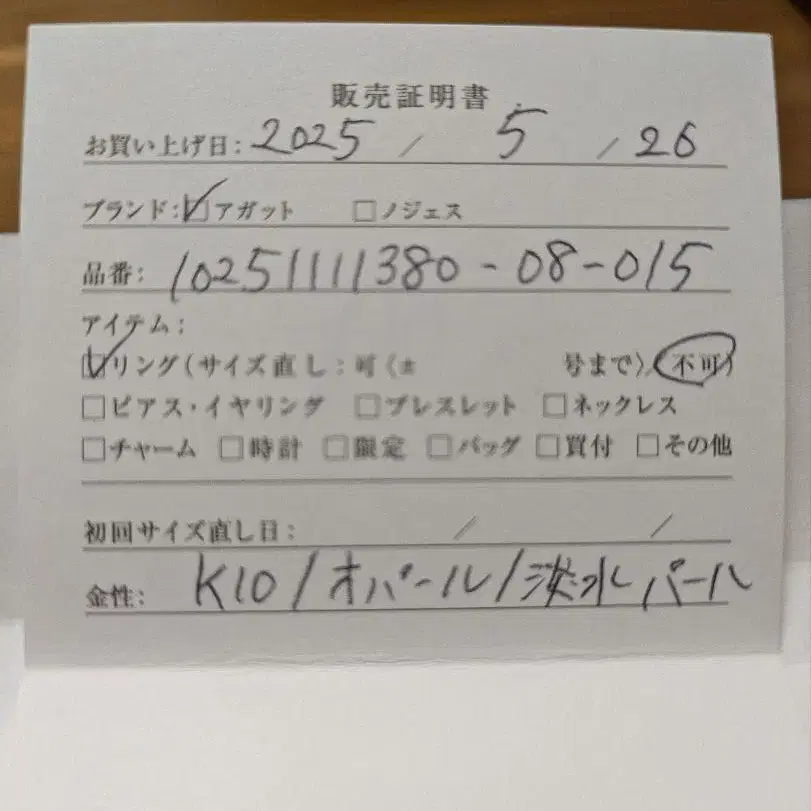 販売証明書
お買い上げ日: 2025 / 5 / 26
ブランド: ☑アガット □ノジェス
品番: 10251111380-08-015
アイテム:
☑リング(サイズ直し: 可〈± 号まで〉/不可)
□ピアス・イヤリング □ブレスレット □ネックレス
□チャーム □時計 □限定 □バッグ □買付 □その他
初回サイズ直し日: / /
金性: K10/オパール/淡水パール